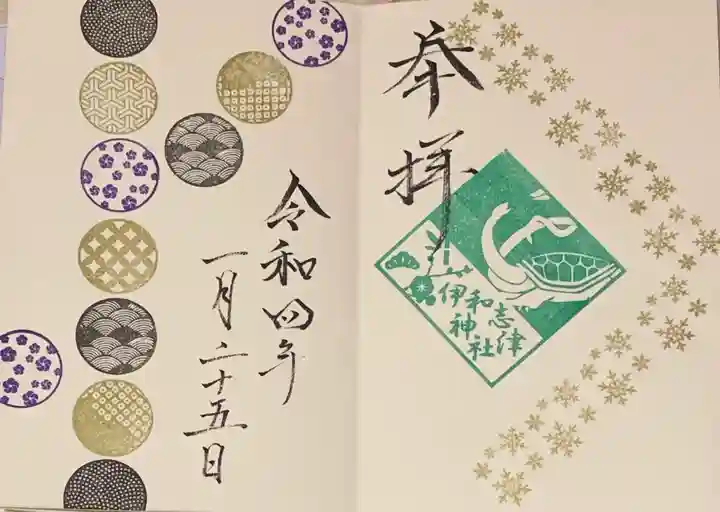 奉拝
伊和志津
神社
令和四年
一月二十五日